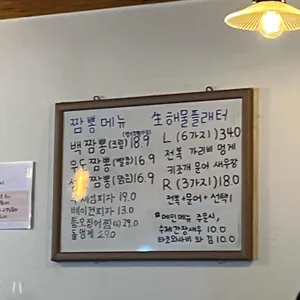 짬뽕메뉴
백짬뽕(크림)18.9
우도짬뽕(빨강)16.9
짬뽕(맑음)16.9
피자 19.0
베이컨피자 13.0
통오징어찜(4) 29.0
돌멍게 29.0
生해물플래터
L (6가지) 34.0
전복 가리비 멍게
키조개 문어 새우장
R (3가지) 18.0
전복+문어+선택1
*메인메뉴 주문시,
수제간장새우 10.0
타코와사비 10.0